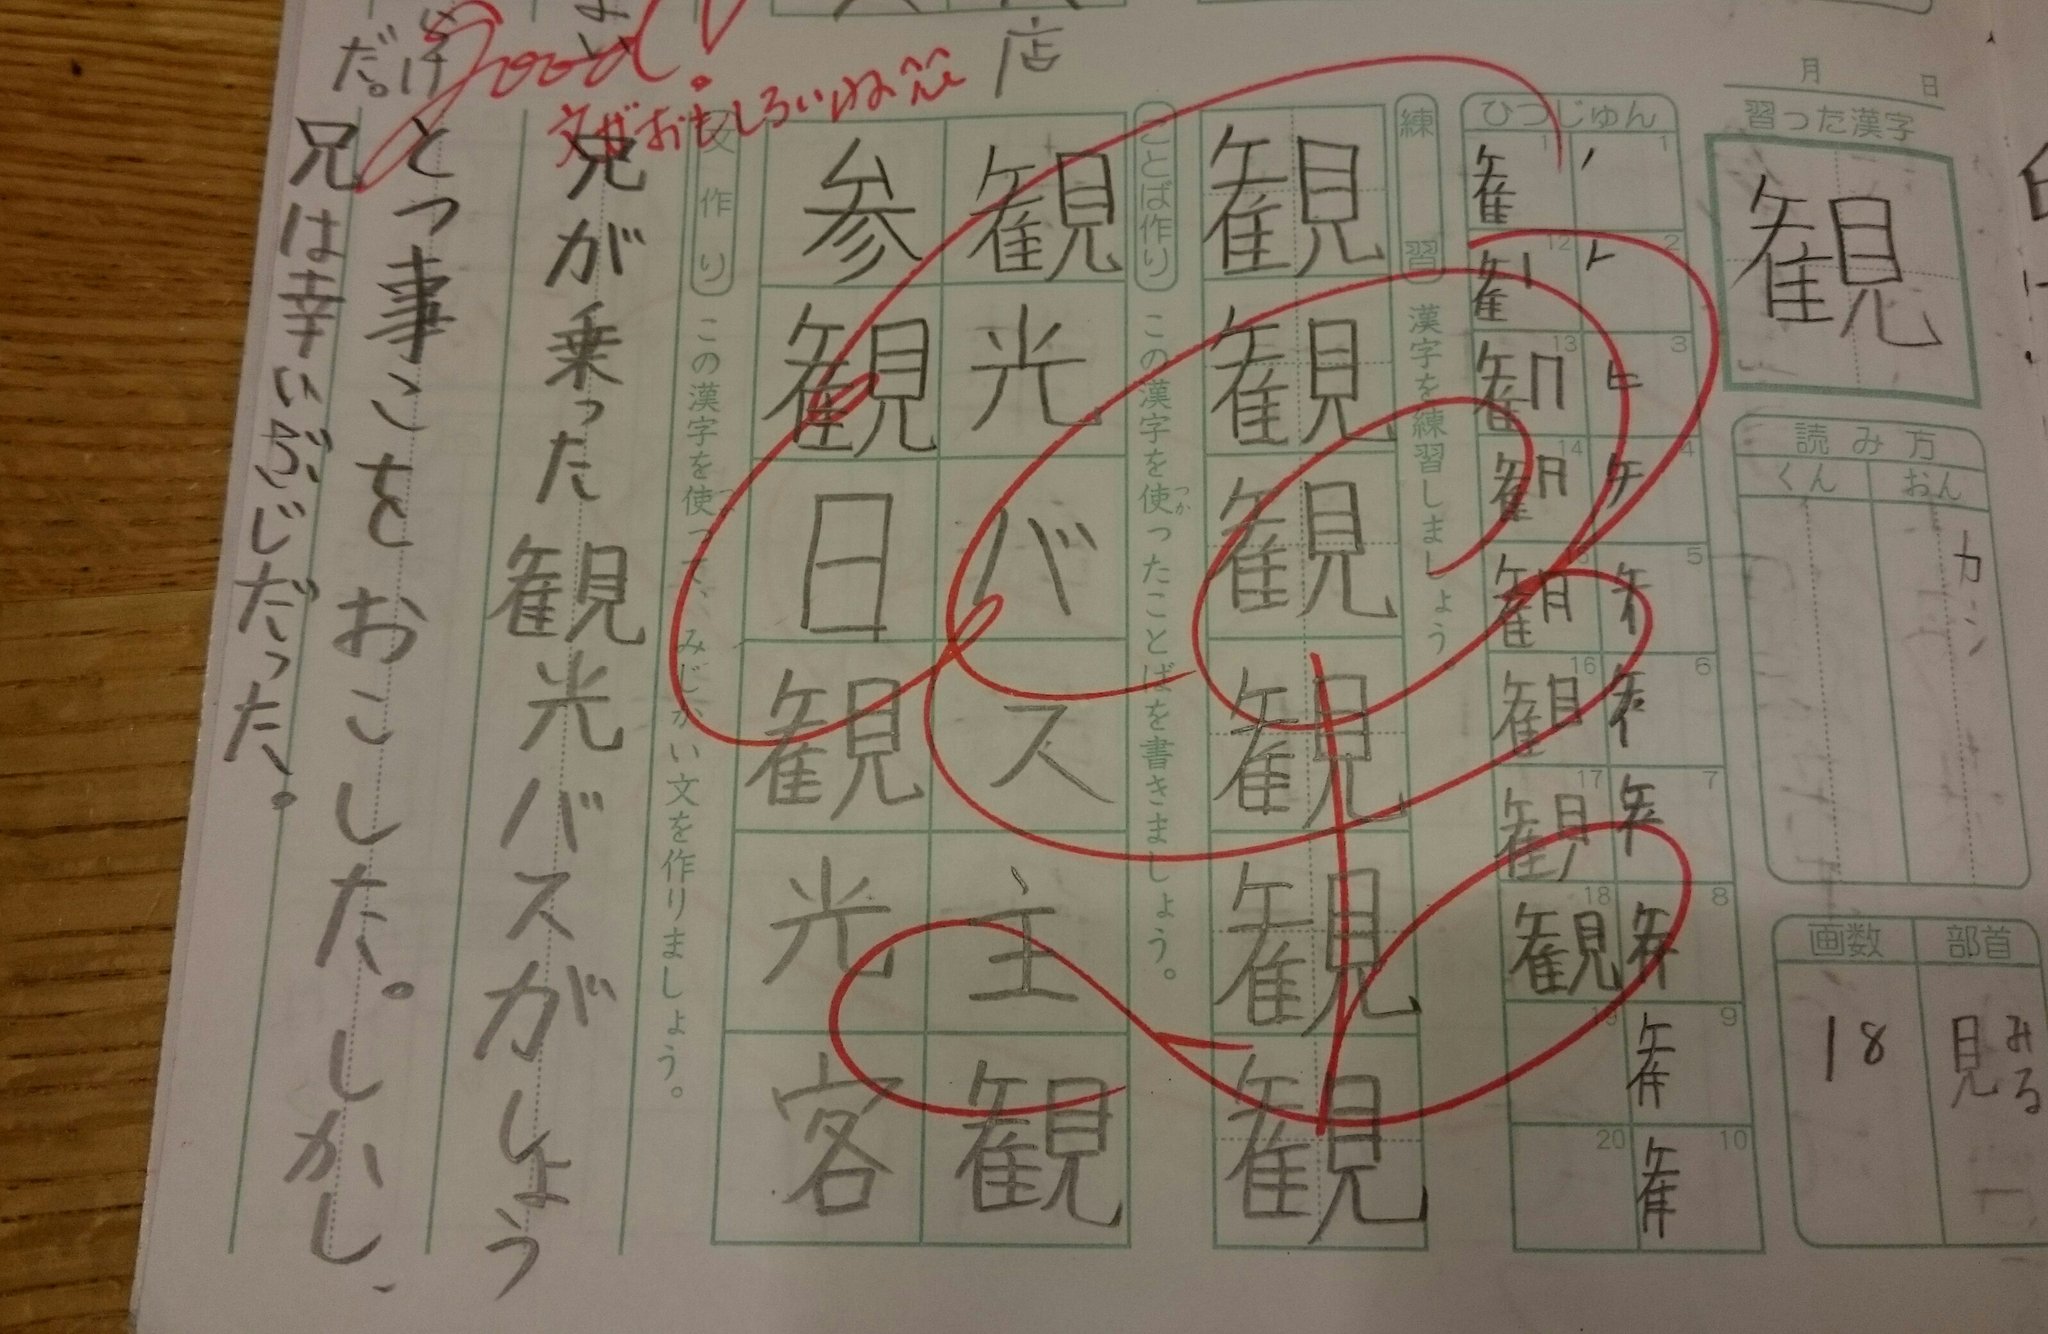 月 日
習った漢字
観
読み方
くん おん
カン
画数 部首
18 見みる
ひつじゅん
1 2 3 4 5 6 7 8 9 10
12 13 14 15 16 17 18 19 20
観
練習 漢字を練習しましょう
観観観観観観
ことば作り この漢字を使ったことばを書きましょう。
つか
観光バス主観
参観日観光客
文作り この漢字を使って、みじかい文を作りましょう。
つか
兄が乗った観光バスがしょう
とつ事こをおこした。しかし、
兄は幸いぶじだった。
Good!
文がおもしろいね
店
だ。